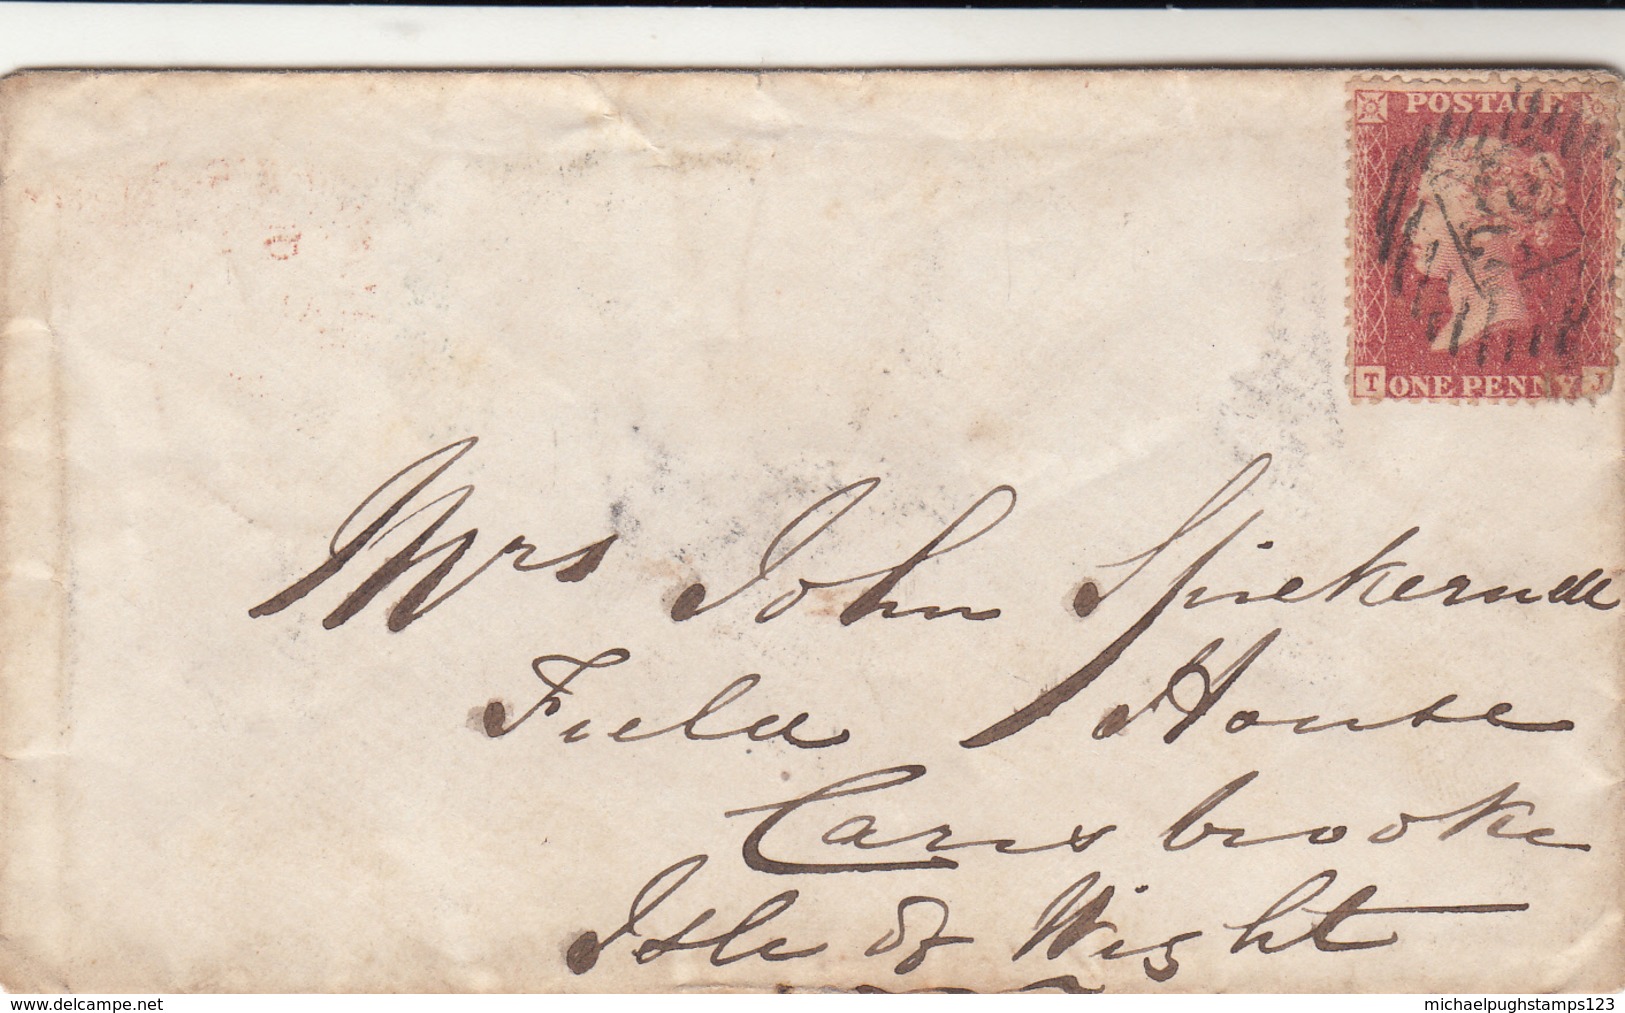 POSTAGE
T ONE PENNY J
Mrs John Spickernell
Field House
Carisbrooke
Isle of Wight
www.delcampe.net
michaelpughstamps123